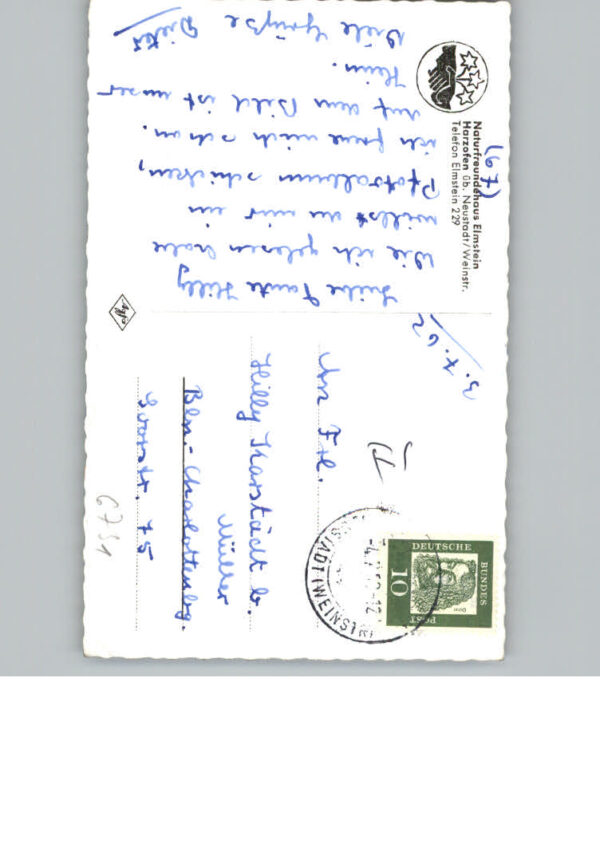 Naturfreundehaus Elmstein
Harzofen üb. Neustadt/Weinstr.
Telefon Elmstein 229
(67)
3. X. 62
Liebe Tante Hilly
Wie ich gelesen habe
willst du mir ein
Photoalbum schicken,
ich freue mich schon.
Auf dem Bild ist unser
Heim.
Viele Grüße
Dieter
An Frl.
Hilly Karstädt b.
Müller
Bln.-Charlottenbg.
75
6731
DEUTSCHE
BUNDES
POST
10
Dürer
(WEINSTR
Agfa